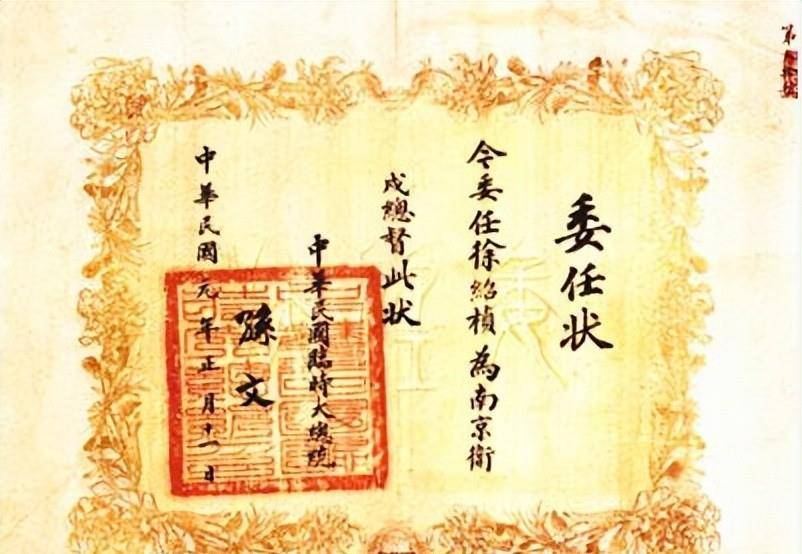 第
委任状
令委任徐紹楨為南京衛
戍總督此状
中華民國臨時大總統
孫文
中華民國元年正月十一日